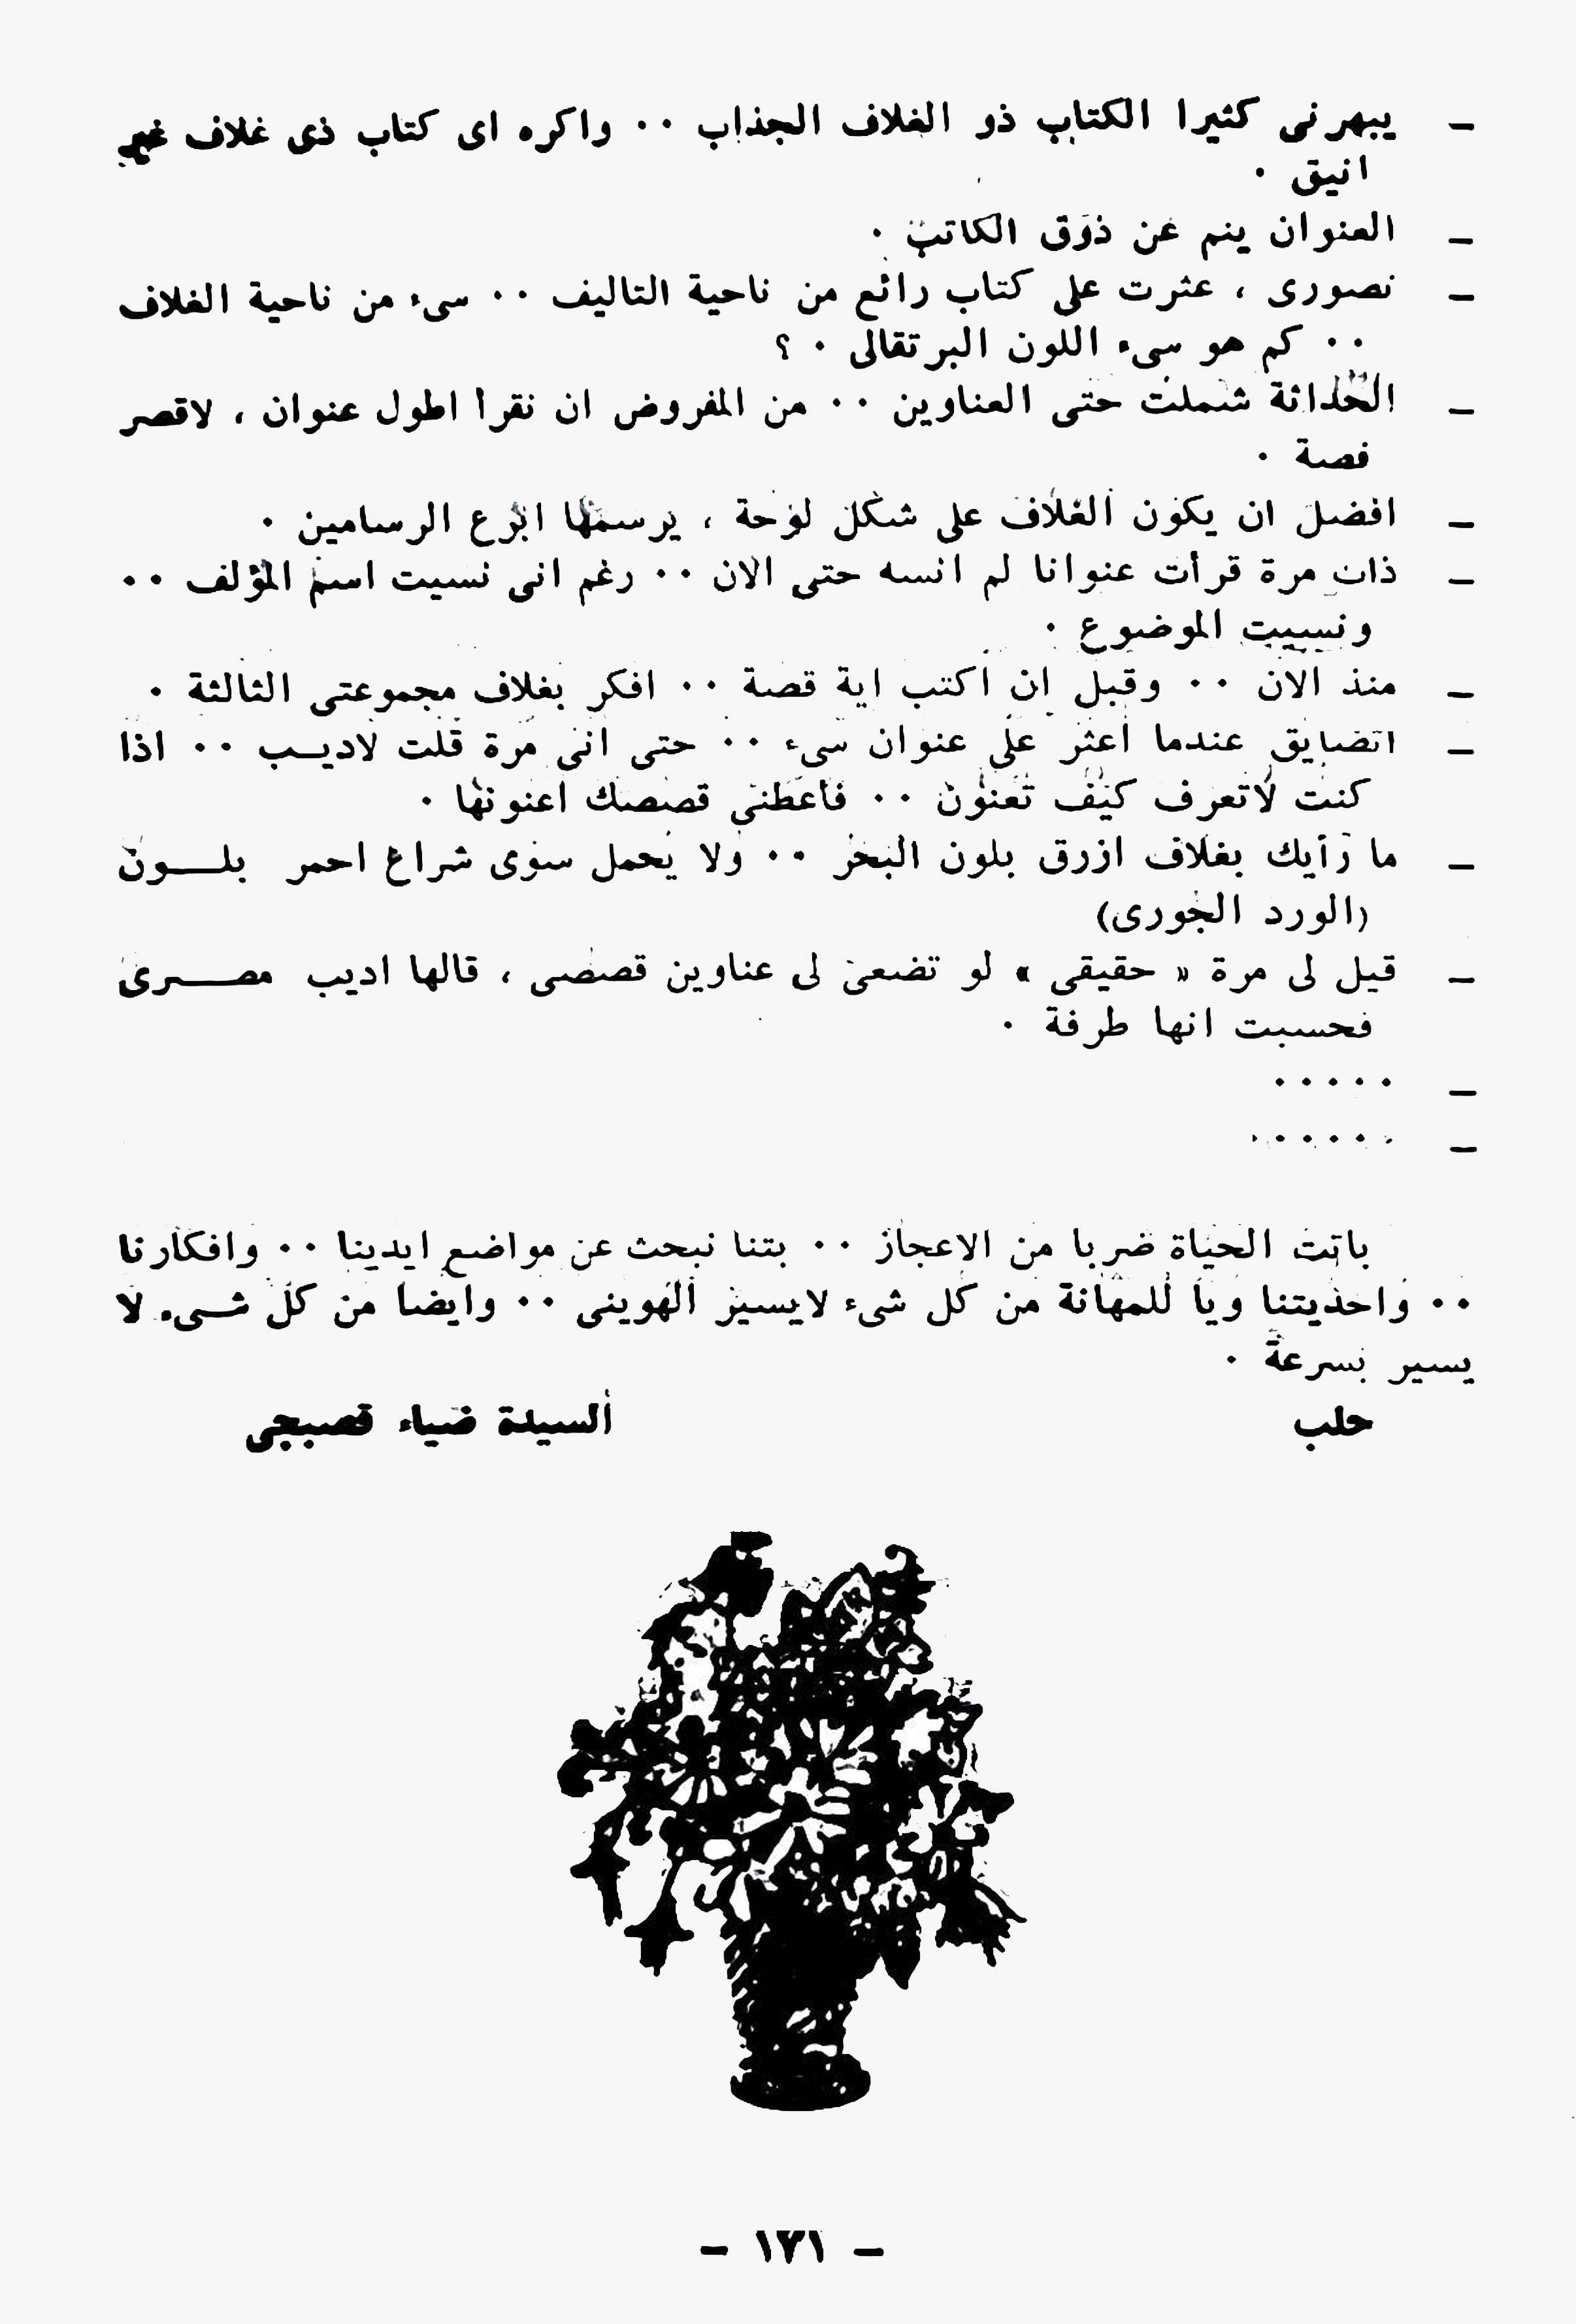 – يبهرنى كثيرا الكتاب ذو الغلاف الجذاب ٠٠ واكره اى كتاب ذى غلاف غير
انيق ٠
– العنوان ينم عن ذوق الكاتب ٠
– تصورى ، عثرت على كتاب رائع من ناحية التاليف ٠٠ سىء من ناحية الغلاف
٠٠ كم هو سىء اللون البرتقالى ٠ ؟
– الحداثة شملت حتى العناوين ٠٠ من المفروض ان نقرا اطول عنوان ، لاقصر
قصة ٠
– افضل ان يكون الغلاف على شكل لوحة ، يرسمها ابرع الرسامين ٠
– ذات مرة قرأت عنوانا لم انسه حتى الان ٠٠ رغم انى نسيت اسم المؤلف ٠٠
ونسيت الموضوع ٠
– منذ الان ٠٠ وقبل ان اكتب اية قصة ٠٠ افكر بغلاف مجموعتى الثالثة ٠
– اتضايق عندما اعثر على عنوان سىء ٠٠ حتى انى مرة قلت لاديب ٠٠ اذا
كنت لاتعرف كيف تعنون ٠٠ فأعطنى قصصك اعنونها ٠
– ما رأيك بغلاف ازرق بلون البحر ٠٠ ولا يحمل سوى شراع احمر بلون
(الورد الجورى)
– قيل لى مرة « حقيقى » لو تضعى لى عناوين قصصى ، قالها اديب مصرى
فحسبت انها طرفة ٠
– ٠٠٠٠٠
– ٠٠٠٠٠٠
باتت الحياة ضربا من الاعجاز ٠٠ بتنا نبحث عن مواضع ايدينا ٠٠ وافكارنا
٠٠ واحذيتنا ويا للمهانة من كل شىء لايسير الهوينى ٠٠ وايضا من كل شىء لا
يسير بسرعة ٠
حلب السيدة ضياء قصبجى
– ١٣١ –